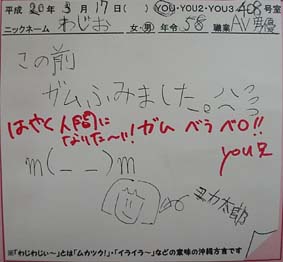 平成20年3月17日( ) YOU・YOU2・YOU3 408号室
ニックネーム わじお 女・男 年令58 職業 AV男優
この前
ガムふみました。
はやく人間に
なりた〜い!ガム ベラベロ!!
you兄
m(__)m
ヨカ太郎
※「わじわじぃ〜」とは「ムカツク!」・「イライラ〜」などの意味の沖縄方言です